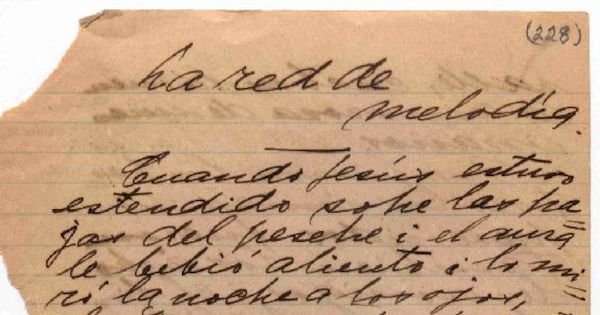 (228)
La red de
melodía.
Cuando Jesús estuvo
estendido sobre las pa=
jas del pesebre i el aura
le bebió aliento i lo mi=
ró la noche a los ojos,